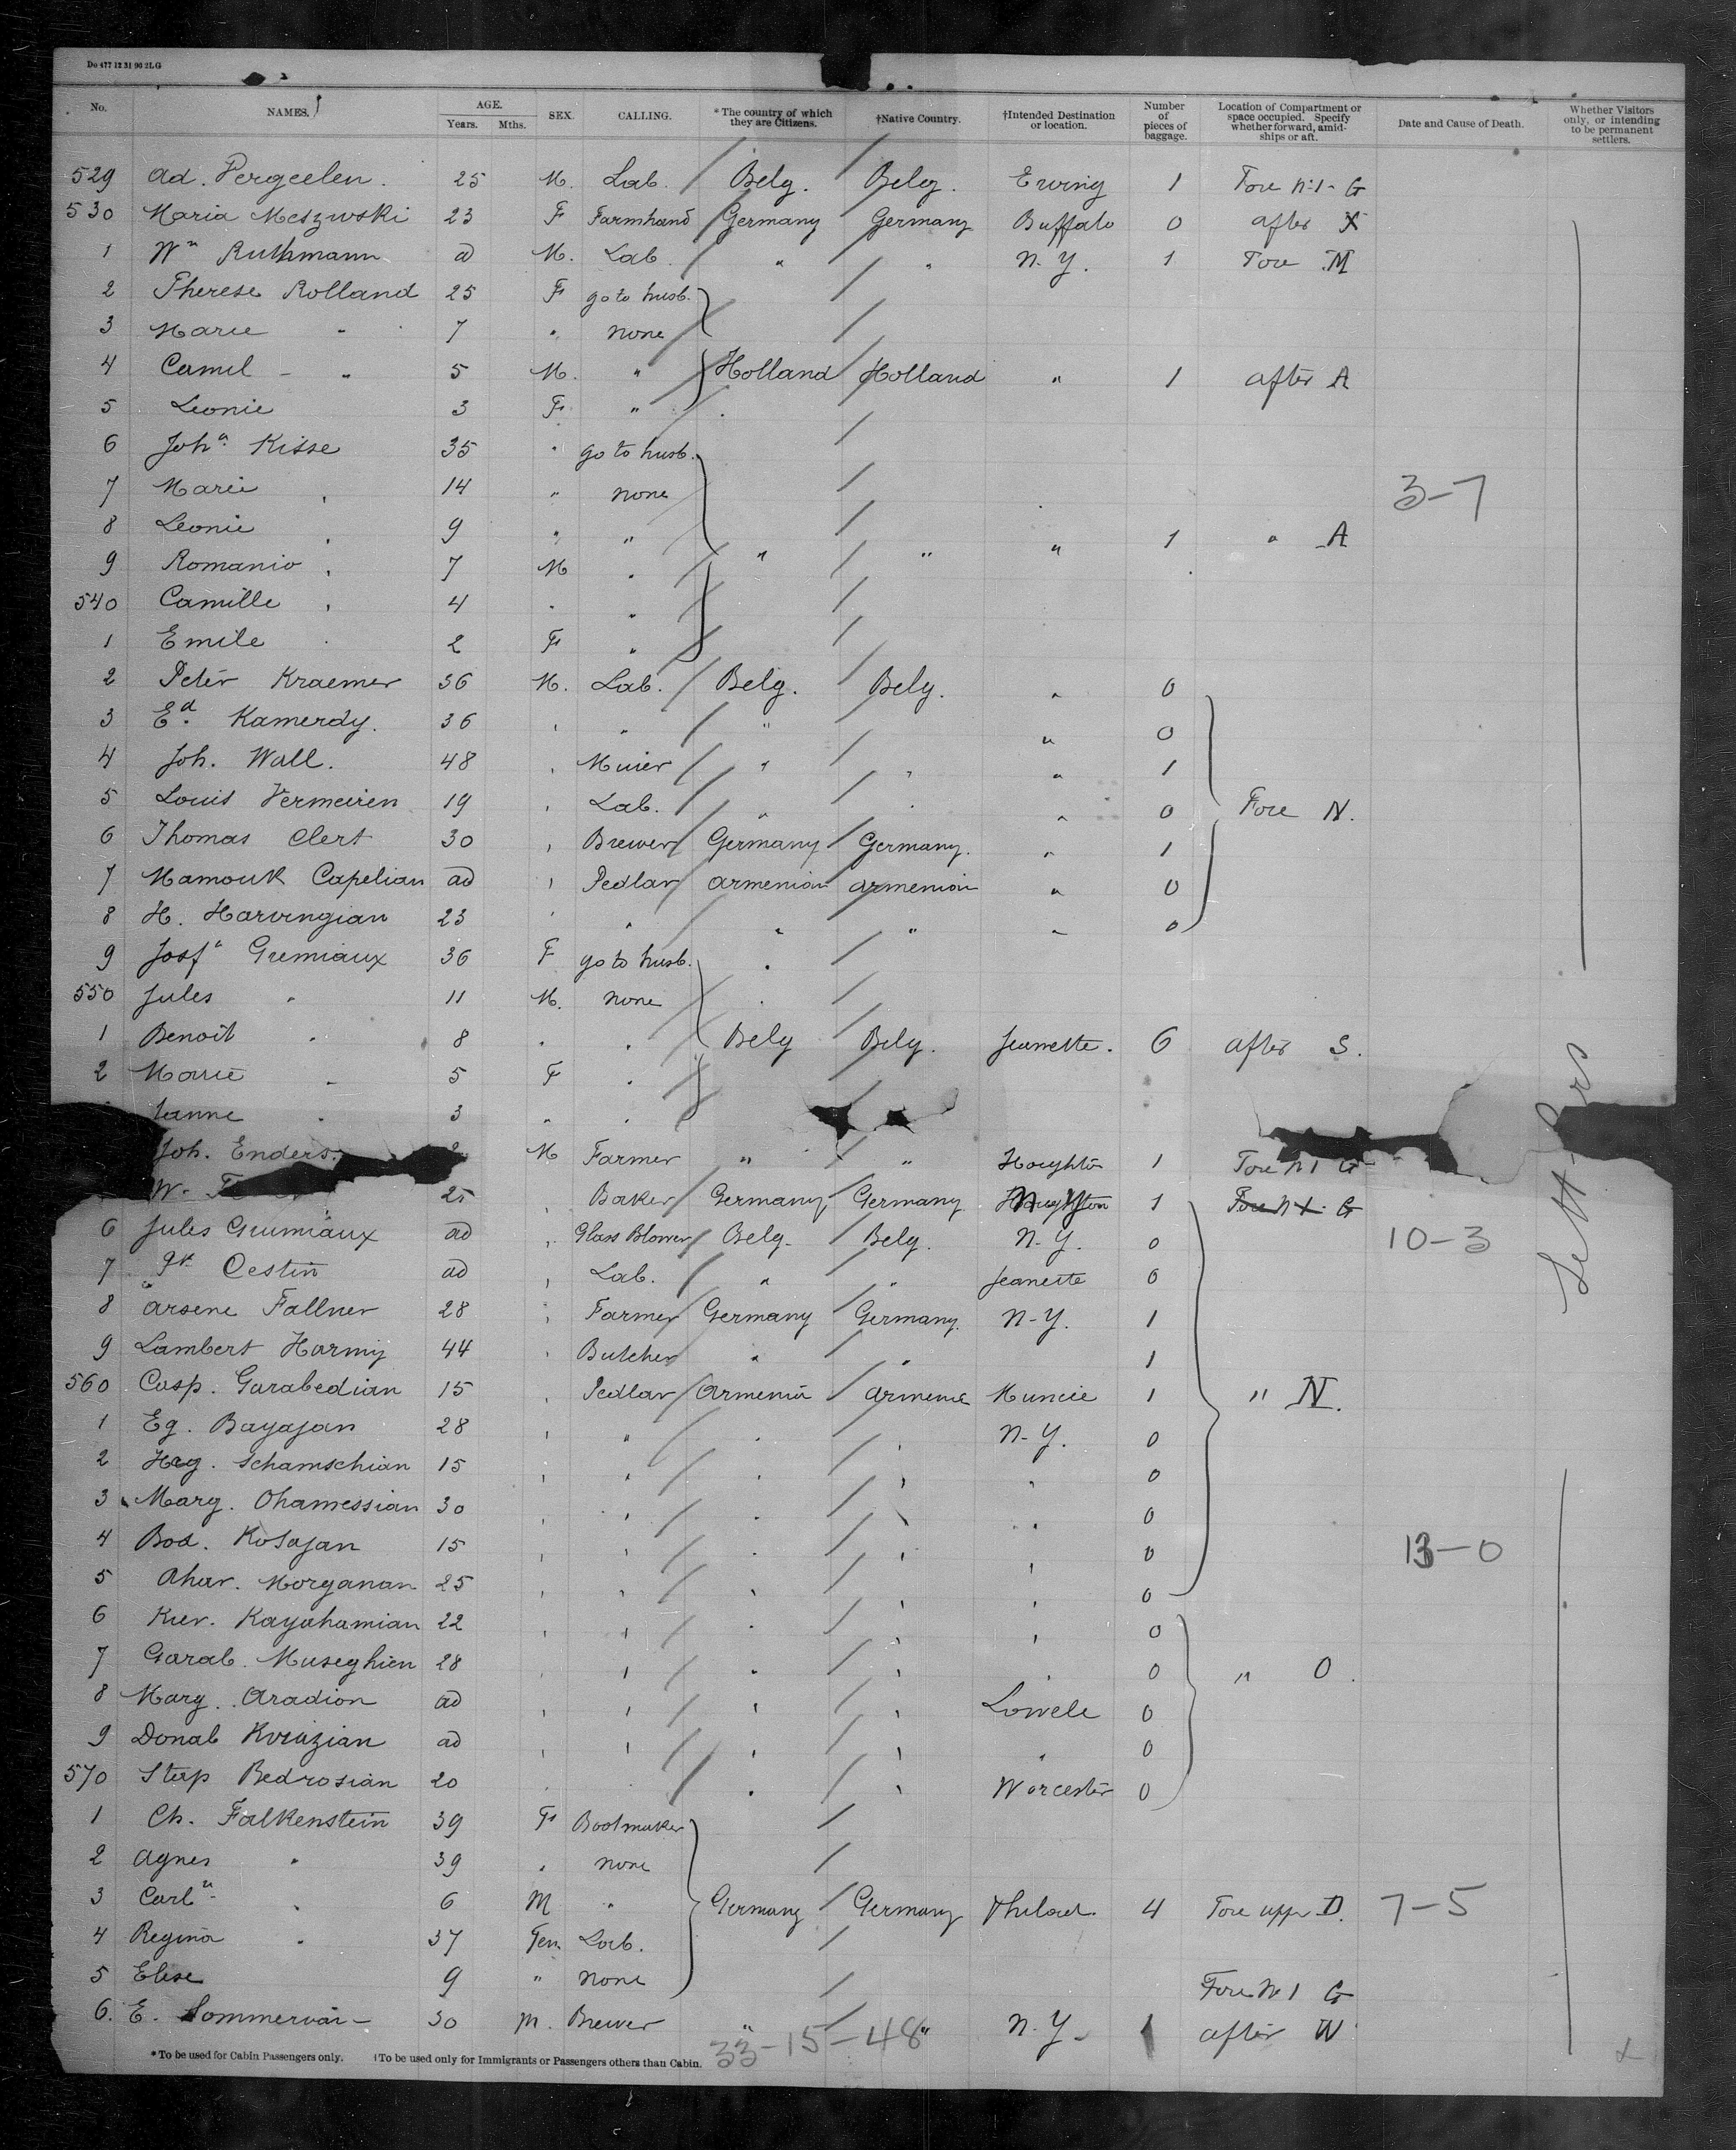 Do 477 12 31 96 2LG
No. NAMES. AGE. Years. Mths. SEX. CALLING. * The country of which they are Citizens. †Native Country. †Intended Destination or location. Number of pieces of baggage. Location of Compartment or space occupied. Specify whether forward, amidships or aft. Date and Cause of Death. Whether Visitors only, or intending to be permanent settlers.
529 Ad. Pergeelen. 25 M. Lab. Belg. Belg. Erving 1 Fore No 1 - G
530 Maria Meszwski 23 F Farmhand Germany Germany Buffalo 0 after X
1 Wm Ruthmann ad M. Lab. " " N.Y. 1 Fore M
2 Therese Rolland 25 F go to husb.
3 Marie " 7 " none
4 Camil - " 5 M. " Holland Holland " 1 after A
5 Leonie 3 F "
6 Joha Kisse 35 " go to husb.
7 Marie " 14 " none 3-7
8 Leonie " 9 " " " 1 " A
9 Romanio " 7 M " " "
540 Camille " 4 " "
1 Emile " 2 F "
2 Peter Kraemer 36 M. Lab. Belg. Belg. " 0
3 Ed. Kamerdy. 36 " " " " 0
4 Joh. Wall. 48 " Miner " " " 1
5 Louis Vermeiren 19 " Lab. " " " 0 Fore N.
6 Thomas Clert 30 " Brewer Germany Germany. " 1
7 Mamouk Capelian ad " Pedlar armenian armenian " 0
8 H. Harvingian 23 " " " " " 0
9 Josfa Gremiaux 36 F go to husb. "
550 Jules " 11 M. none "
1 Benoit " 8 " " Belg Belg. Jeanette. 6 after S.
2 Marie " 5 F "
Janne " 3 " "
Joh. Enders. M Farmer " " Houghton 1 Fore No 1 G
W. 25 " Baker Germany Germany N.Y. 1 Fore No 1. G
6 Jules Grumiaux ad " Glass Blower Belg. Belg. N.Y. 0 10-3
7 Cestin ad " Lab. " " Jeanette 0
8 Arsene Fallner 28 " Farmer Germany Germany. N-Y. 1
9 Lambert Harmij 44 " Butcher " " 1
560 Casp. Garabedian 15 " Pedlar Armenia Armenia Muncie 1 " N.
1 Eg. Bayajan 28 " " " " N-Y. 0
2 Hag. Schamschian 15 " " " " " 0
3 Marg. Ohamessian 30 " " " " " 0
4 Bod. Kosajan 15 " " " " " 0 13-0
5 Ahar. Morganan 25 " " " " " 0
6 Kev. Kayahamian 22 " " " " " 0
7 Garab. Museghien 28 " " " " " 0 " O.
8 Marg. Aradion ad " " " " Lowele 0
9 Donab Kviazian ad " " " " " 0
570 Step Bedrosian 20 " " " " Worcester 0
1 Ch. Falkenstein 39 F Bootmaker
2 Agnes " 39 " none
3 Carl " 6 M " Germany Germany Philad. 4 Fore upp D. 7-5
4 Regina " 37 Fem Lab.
5 Elise 9 " none Fore No 1 G
6. E. Sommervai - 30 M. Brewer " " N.Y. 1 after W
33-15-48
*To be used for Cabin Passengers only. †To be used only for Immigrants or Passengers others than Cabin.